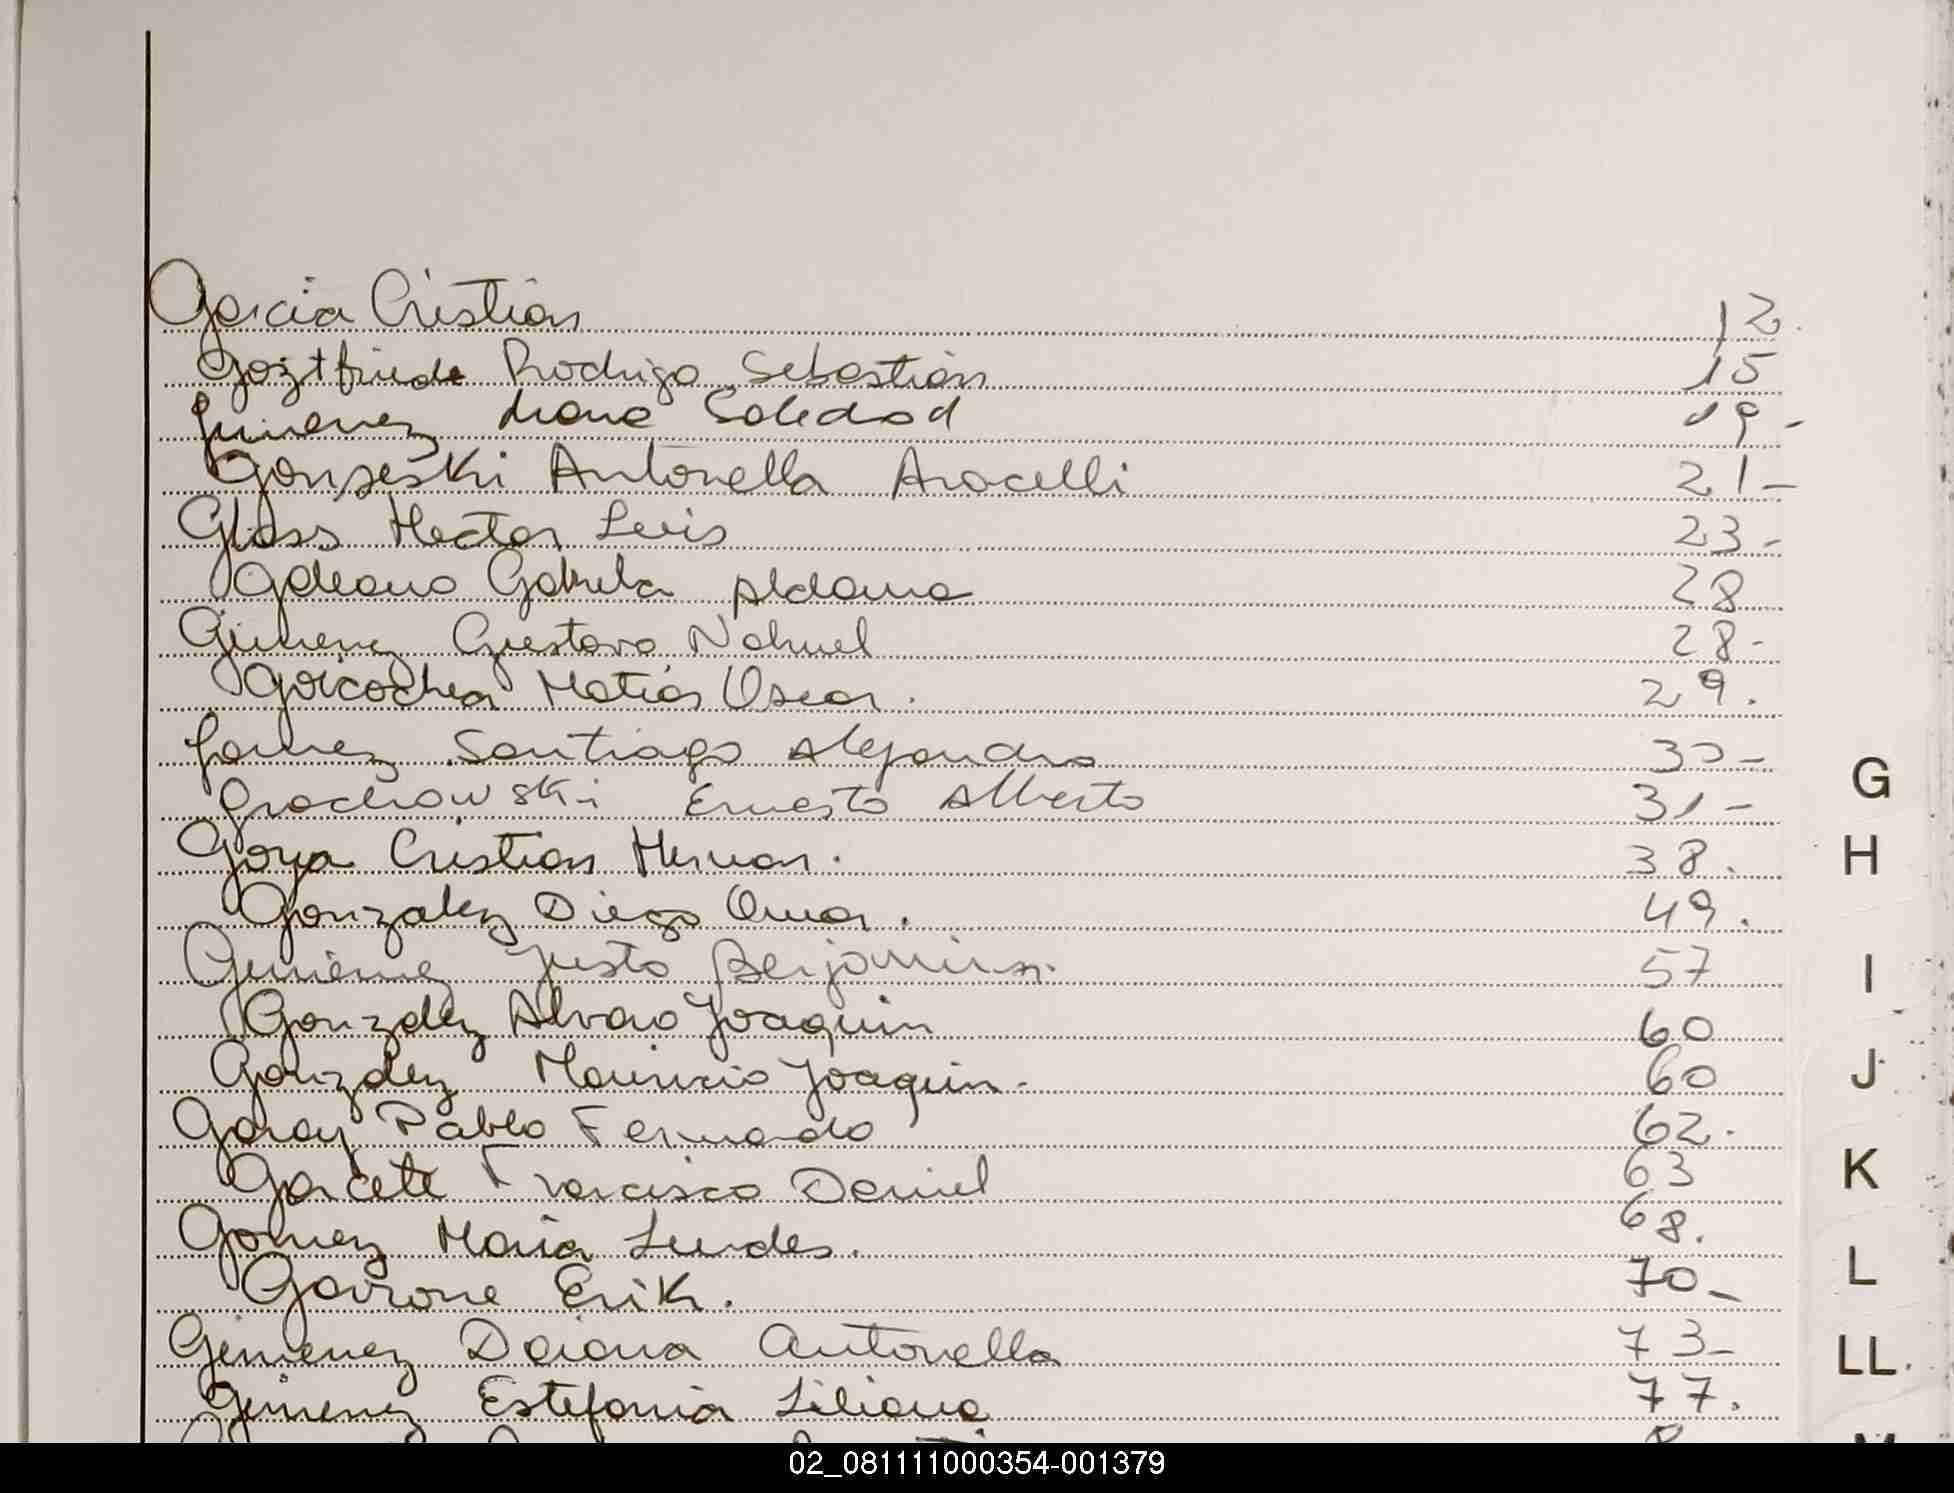 Garcia Cristian 12.
Goztfriede Rodrigo Sebastián 15
Jimenez Liliana Soledad 19-
Gonseski Antonella Aracelli 21-
Glass Hector Luis 23-
Galeano Gabriela Aldana 28
Gimenez Gustavo Nahuel 28-
Goicochea Matías Oscar. 29.
Gomez Santiago Alejandro 30-
Grochowski Ernesto Alberto 31-
Goya Cristian Hernan. 38.
Gonzalez Diego Omar. 49.
Justo Benjamin. 57
Gonzalez Alvaro Joaquin 60
Gonzalez Mauricio Joaquin. 60
Garay Pablo Fernando 62.
Garcete Francisco Daniel 63
Gomez Maria Lurdes. 68.
Gavrone Erik. 70-
Gimenez Daiana Antonella 73-
Gimenez Estefania Liliana 77.
G
H
I
J
K
L
LL
02_081111000354-001379